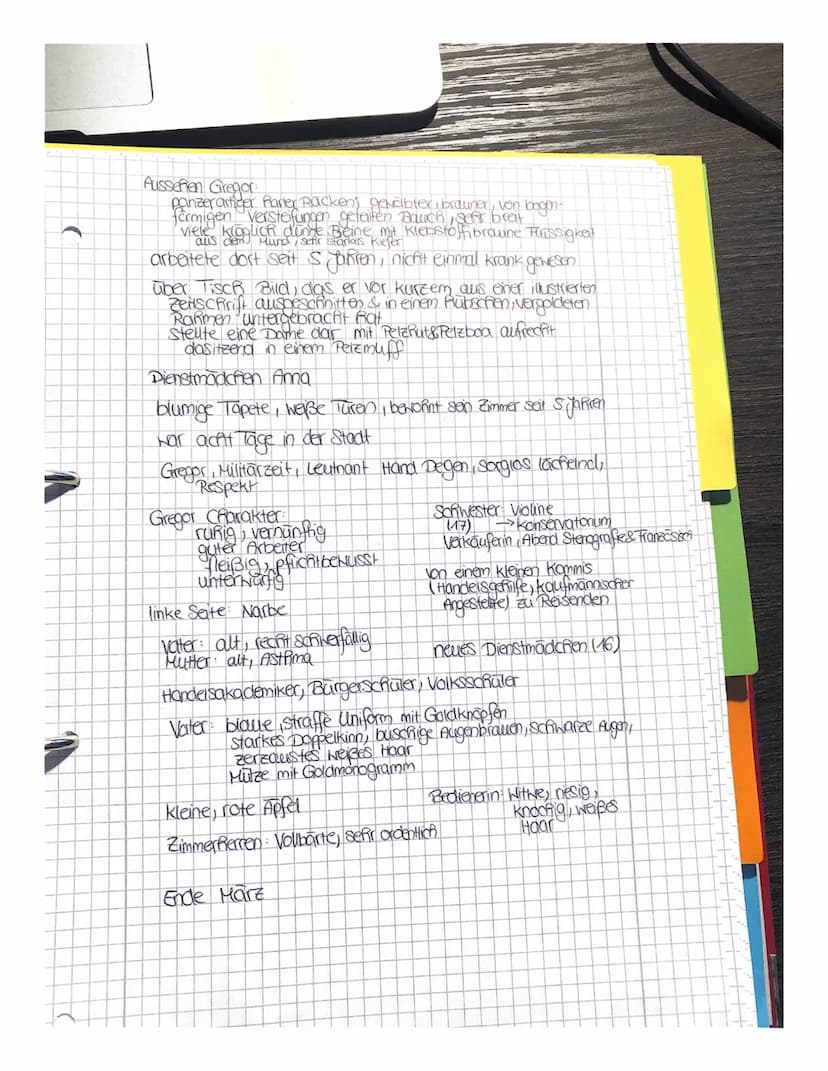 Aussehen Gregor:
panzerartiger harter Rücken, gewölbter, brauner, von bogen-
förmigen Versteifungen geteilten Bauch, sehr breit
viele kläglich dünne Beine mit Klebstoff, braune Flüssigkeit
aus dem Mund, sehr starkes Kiefer
arbeitete dort seit 5 Jahren, nicht einmal krank gewesen
über Tisch Bild, das er vor kurzem aus einer illustrierten
Zeitschrift ausgeschnitten & in einem hübschen, vergoldeten
Rahmen untergebracht hat
stellte eine Dame dar mit Pelzhut & Pelzboa aufrecht
dasitzend in einem Pelzmuff
Dienstmädchen Anna
blumige Tapete, weiße Türen, bewohnt sein Zimmer seit 5 Jahren
war acht Tage in der Stadt
Gregor, Militärzeit, Leutnant Hand Degen, sorglos lächelnd,
Respekt
Gregor Charakter:
ruhig, vernünftig
guter Arbeiter
fleißig, pflichtbewusst
unterwürfig
Schwester: Violine
(17) → Konservatorium
Verkäuferin, Abend Stenografie & Französisch
von einem kleinen Kommis
(Handelsgehilfe, kaufmännischer
Angestellte) zu Reisenden
linke Seite: Narbe
Vater: alt, recht schwerfällig
Mutter: alt, Asthma
neues Dienstmädchen (16)
Handelsakademiker, Bürgerschüler, Volksschüler
Vater: blaue, straffe Uniform mit Goldknöpfen
starkes Doppelkinn, buschige Augenbrauen, schwarze Augen,
zerzaustes weißes Haar
Mütze mit Goldmonogramm
kleine, rote Äpfel
Bedienerin: Witwe, riesig,
knochig, weißes
Haar
Zimmerherren: Vollbärte, sehr ordentlich
Ende März